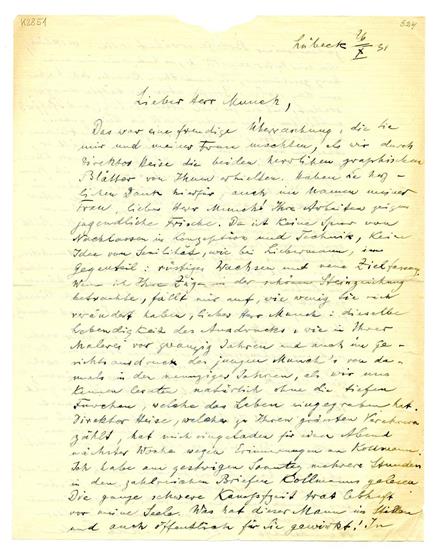 K2851
524
Lübeck 26/X 31
Lieber Herr Munch,
Das war eine freudige Überraschung, die Sie
mir und meiner Frau machten, als wir durch
Direktor Heise die beiden herrlichen graphischen
Blätter von Ihnen erhielten. Haben Sie herz-
lichen Dank hierfür, auch im Namen meiner
Frau, lieber Herr Munch! Ihre Arbeiten zeigen
jugendliche Frische. Da ist keine Spur von
Nachlassen in Konzeption und Technik, keine
Idee von Senilität, wie bei Liebermann, im
Gegenteil: rüstiges Wachsen und neue
Wenn ich Ihre Züge in der schönen Steinzeichnung
betrachte, fällt mir auf, wie wenig Sie sich
verändert haben, lieber Herr Munch: dieselbe
Lebendigkeit des Ausdruckes, wie in Ihrer
Malerei vor zwanzig Jahren und auch im Ge-
sichtsausdruck des jungen Munch's von da-
mals in den neunziger Jahren, als wir uns
kennen lernten, natürlich ohne die tiefen
Furchen, welche das Leben eingegraben hat.
Direktor Heise, welcher zu Ihren grössten Verehrern
zählt, hat mich eingeladen für einen Abend
nächster Woche wegen Erinnerungen an Kollmann.
Ich habe am gestrigen Sonntag mehrere Stunden
in den zahlreichen Briefen Kollmanns gelesen
Die ganze schwere Kampfzeit trat lebhaft
vor meine Seele. Was hat dieser Mann im Stillen
und auch öffentlich für Sie gewirkt! In